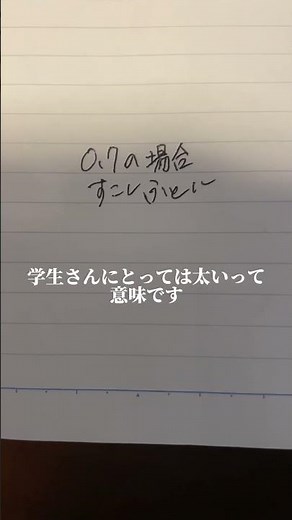 0.7の場合
すこしふとい
学生さんにとっては太いって
意味です